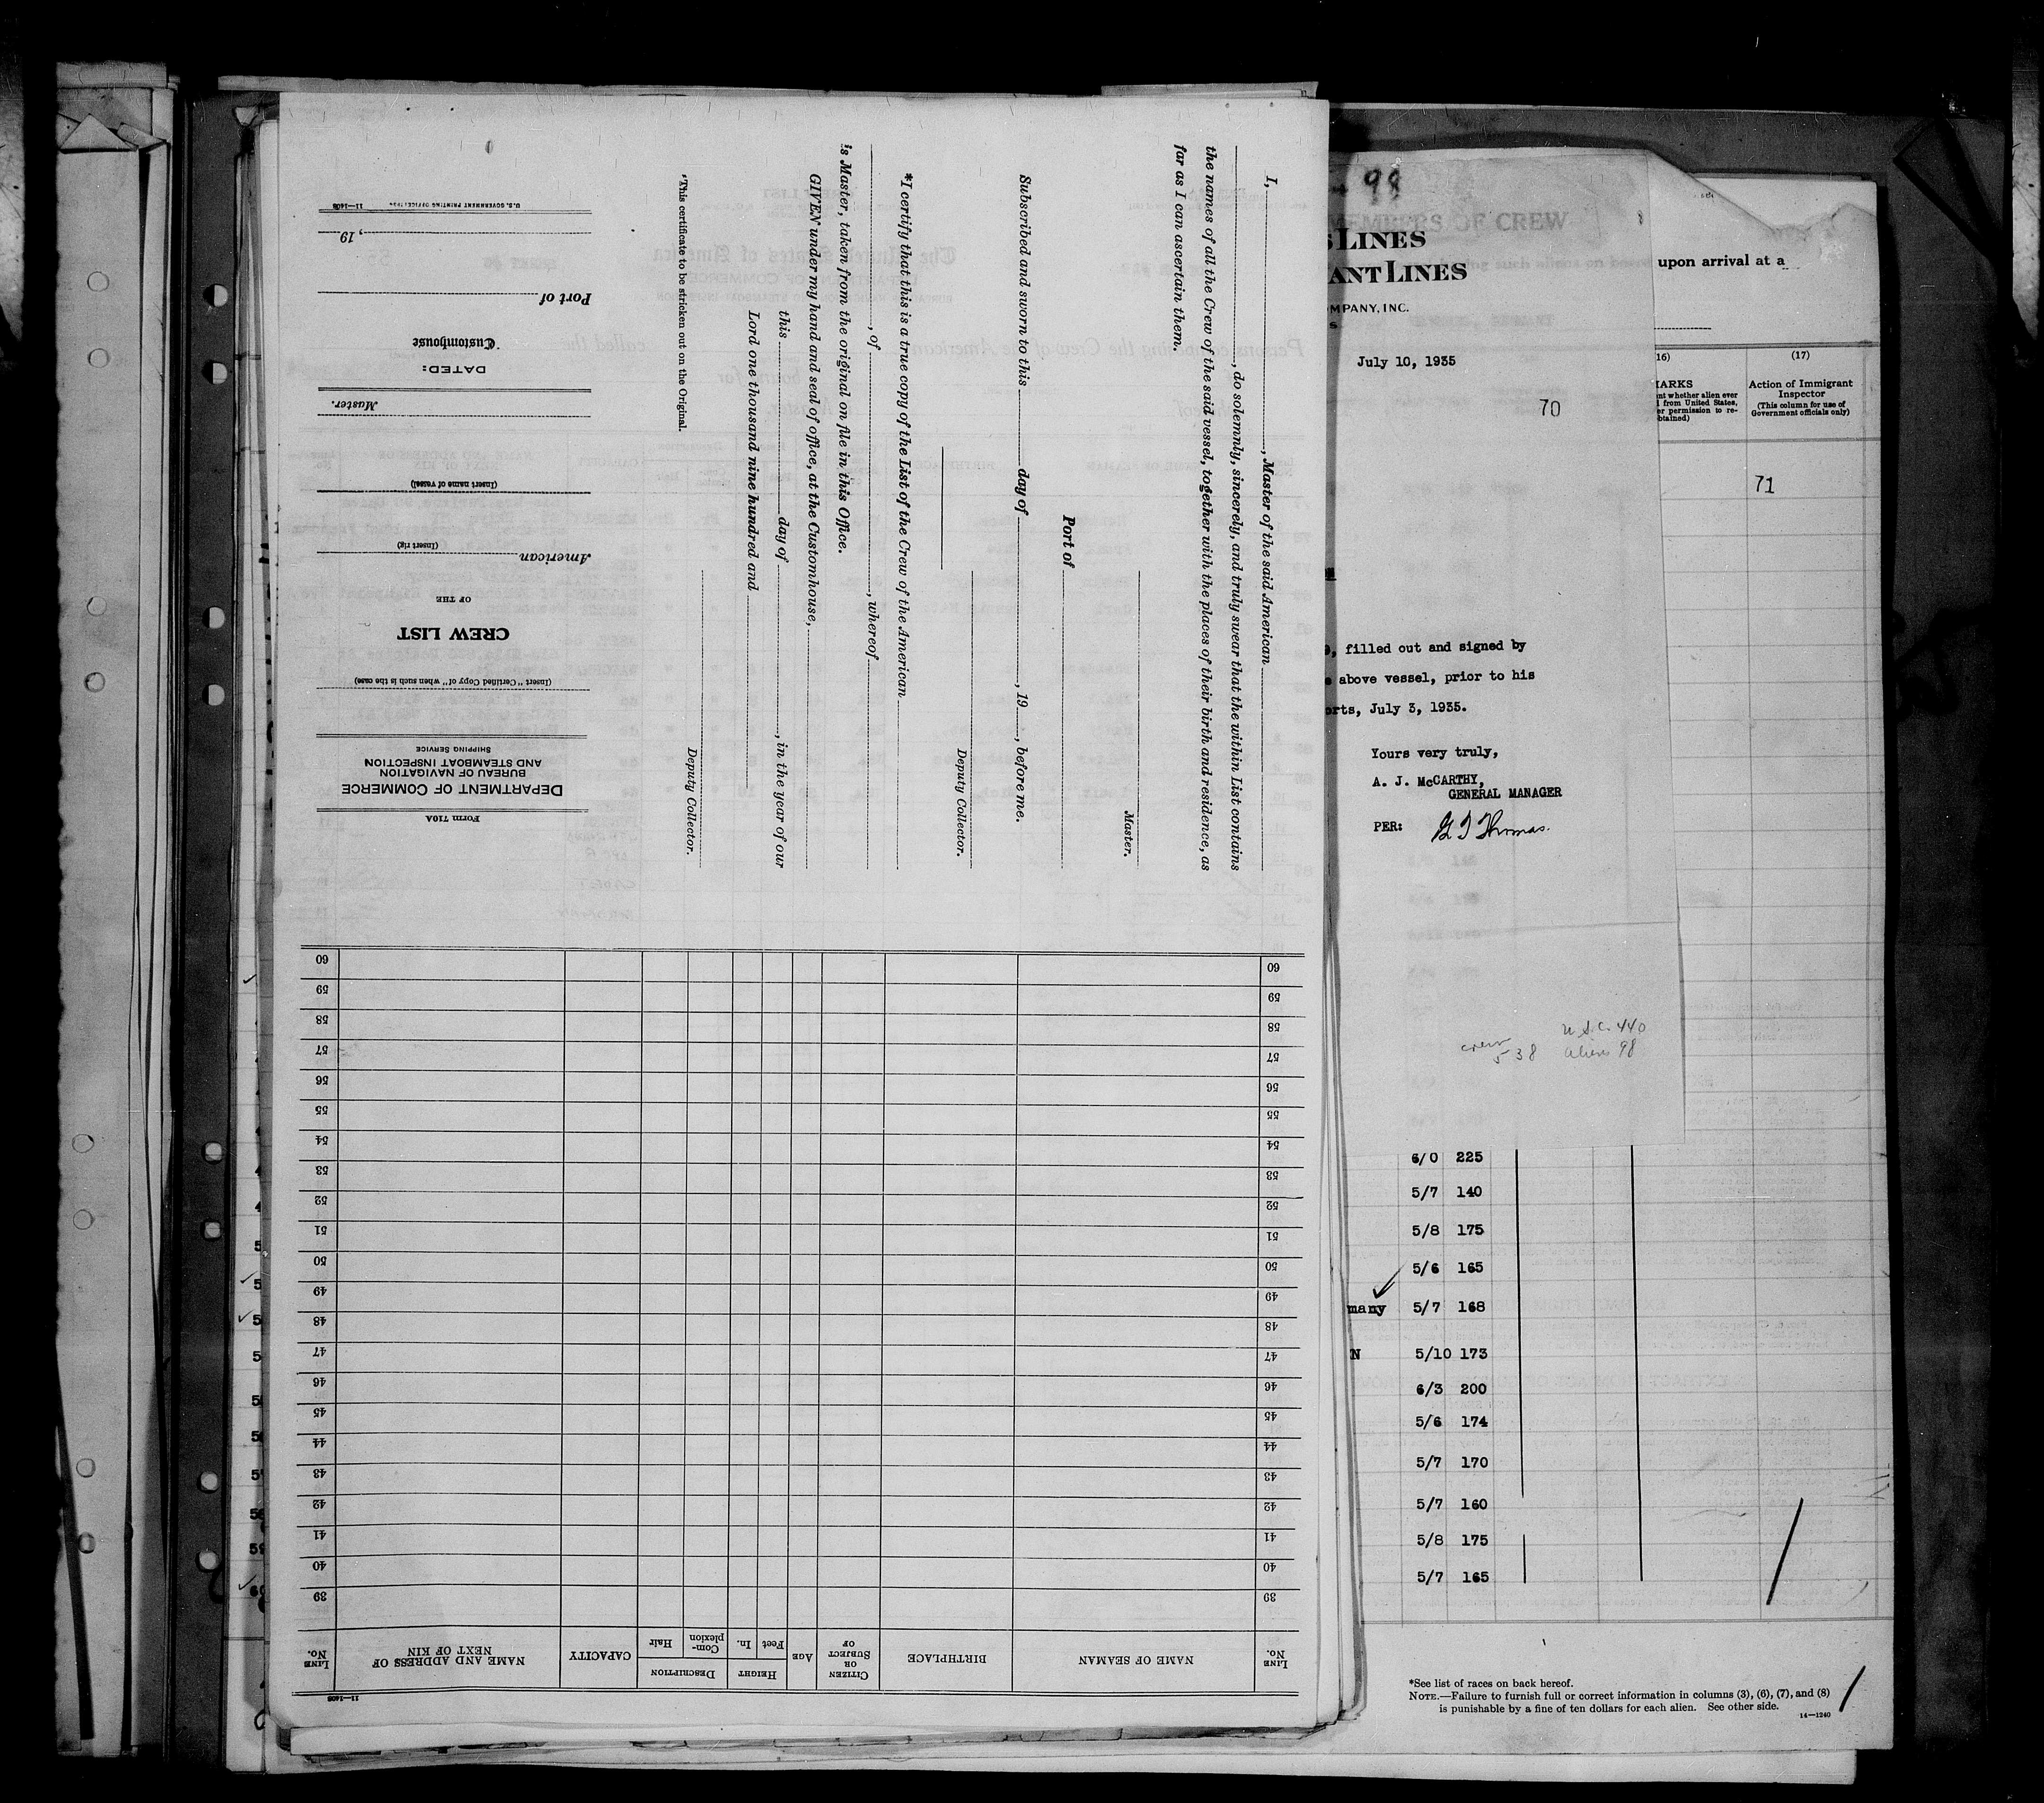 Form 710A
DEPARTMENT OF COMMERCE
BUREAU OF NAVIGATION
AND STEAMBOAT INSPECTION
SHIPPING SERVICE
(Insert "Certified Copy of" when such is the case)
CREW LIST
OF THE
American
(Insert rig)
(Insert name of vessel)
Master.
DATED:
Customhouse
Port of
, 19
11—1408 U.S. GOVERNMENT PRINTING OFFICE: 1934
I, , Master of the said American
, do solemnly, sincerely, and truly swear that the within List contains
the names of all the Crew of the said vessel, together with the places of their birth and residence, as
far as I can ascertain them.
Master.
Port of
Subscribed and sworn to this day of , 19 , before me.
Deputy Collector.
*I certify that this is a true copy of the List of the Crew of the American
, of , whereof
is Master, taken from the original on file in this Office.
GIVEN under my hand and seal of office, at the Customhouse,
this day of , in the year of our
Lord one thousand nine hundred and
Deputy Collector.
*This certificate to be stricken out on the Original.
11—1408
LINE No. NAME OF SEAMAN BIRTHPLACE CITIZEN OR SUBJECT OF AGE HEIGHT Feet In. DESCRIPTION Complexion Hair CAPACITY NAME AND ADDRESS OF NEXT OF KIN LINE No.
39 39
40 40
41 41
42 42
43 43
44 44
45 45
46 46
47 47
48 48
49 49
50 50
51 51
52 52
53 53
54 54
55 55
56 56
57 57
58 58
59 59
60 60
98
MEMBERS OF CREW
S LINES
ANT LINES
MPANY, INC.
July 10, 1935
70
, filled out and signed by
above vessel, prior to his
orts, July 3, 1935.
Yours very truly,
A. J. McCARTHY,
GENERAL MANAGER
PER: Thomas.
crew 538
U.S.C. 440
aliens 98
upon arrival at a
16) (17)
MARKS
nt whether alien ever
from United States,
er permission to re-
btained)
Action of Immigrant
Inspector
(This column for use of
Government officials only)
71
6/0 225
5/7 140
5/8 175
5/6 165
many 5/7 168
N 5/10 173
6/3 200
5/6 174
5/7 170
5/7 160
5/8 175
5/7 165
*See list of races on back hereof.
NOTE.—Failure to furnish full or correct information in columns (3), (6), (7), and (8)
is punishable by a fine of ten dollars for each alien. See other side.
14—1240